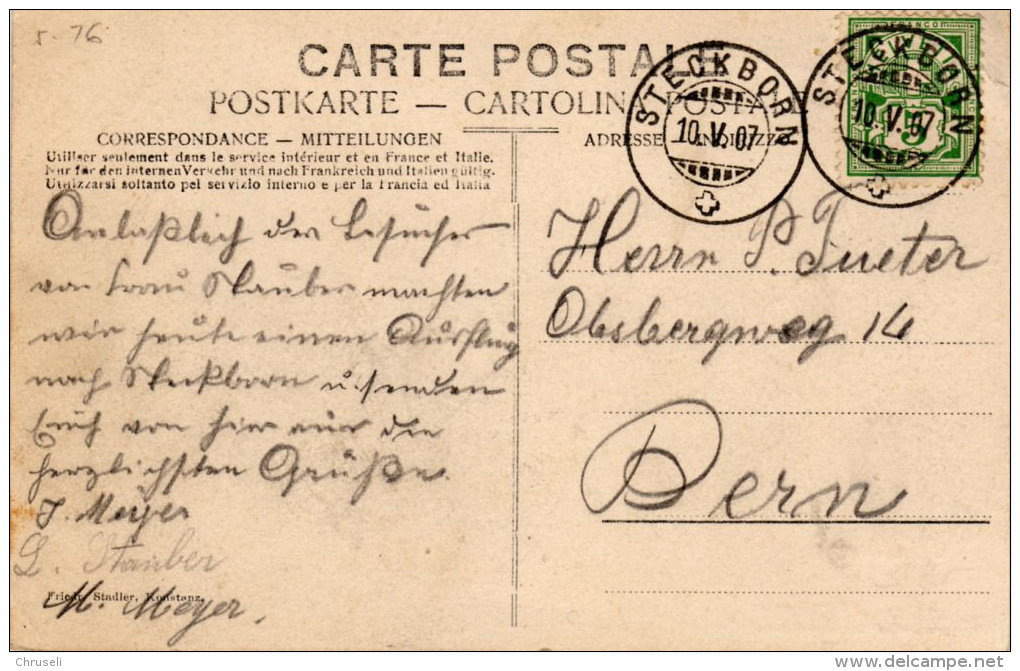 5. 76
CARTE POSTALE
POSTKARTE — CARTOLINA POSTALE
CORRESPONDANCE — MITTEILUNGEN
Utiliser seulement dans le service intérieur et en France et Italie.
Nur für den internen Verkehr und nach Frankreich und Italien gültig.
Utilizzarsi soltanto pel servizio interno e per la Francia ed Italia
Anlaßlich des Besuches
von Frau Stauber machten
wir heute einen Ausflug
nach Steckborn u. senden
Euch von hier aus die
herzlichsten Grüße.
J. Meyer
L. Stauber
M. Meyer,
Friedr. Stadler, Konstanz.
ADRESSE INDIRIZZO
STECKBORN
10.V.07
STECKBORN
10.V.07
FRANCO
5
Herrn P. Tueter
Obsbergweg 14
Bern
Chruseli
delcampe.net